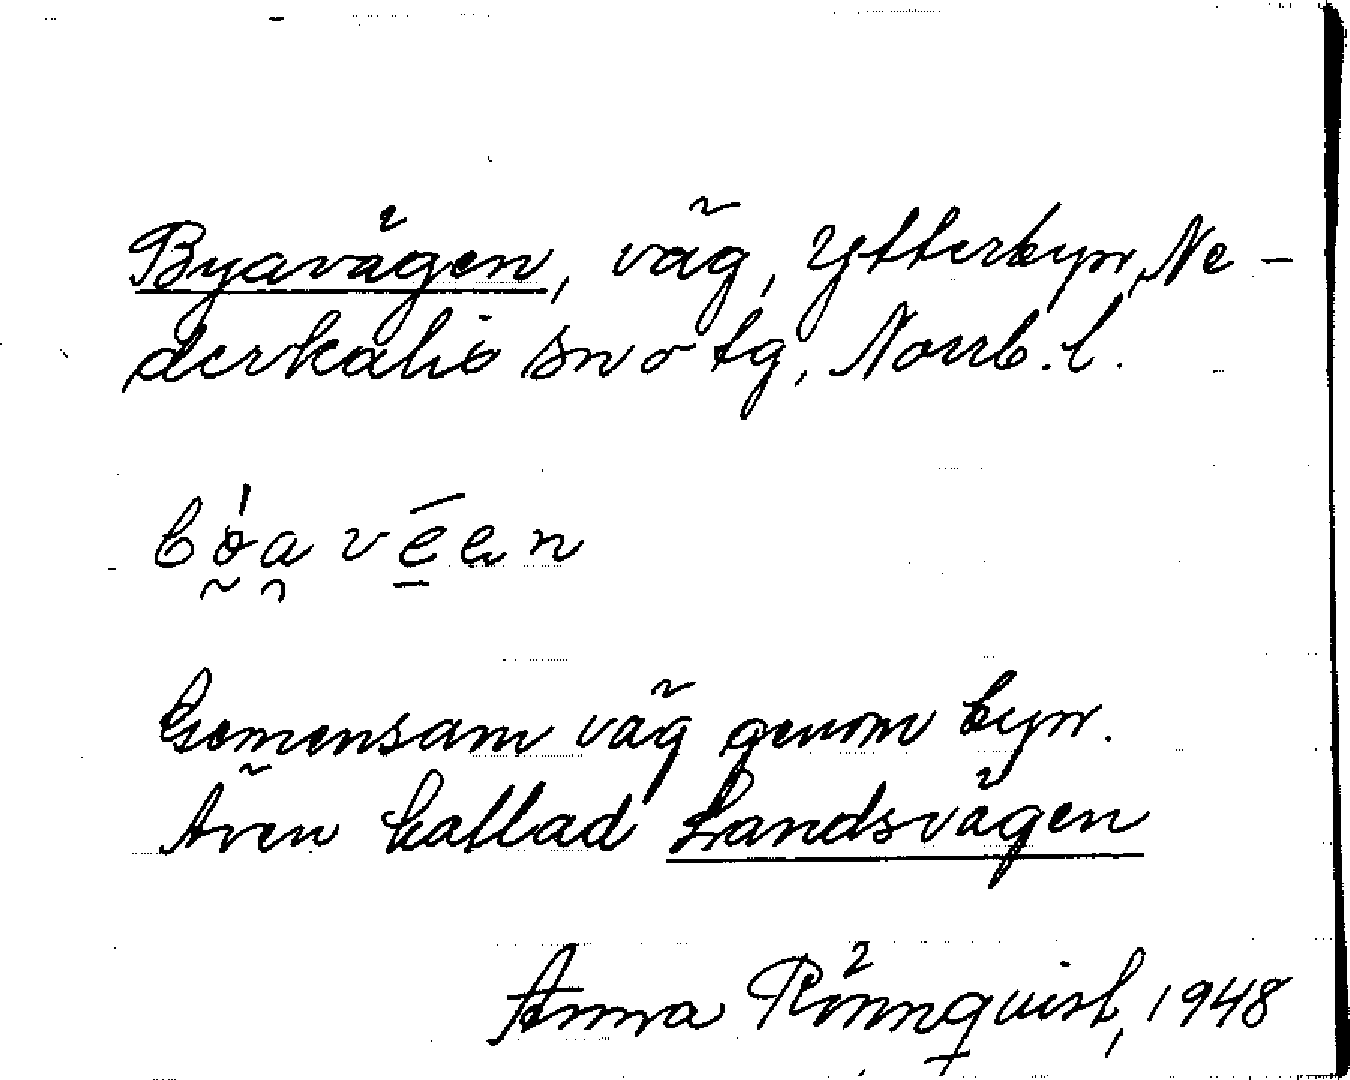 Byavägen, väg, Ytterbyn, Ne-
derkalix sn o tg, Norrb. l.
Gemensam väg genom byn.
Även kallad Landsvägen
Anna Rönnquist, 1948